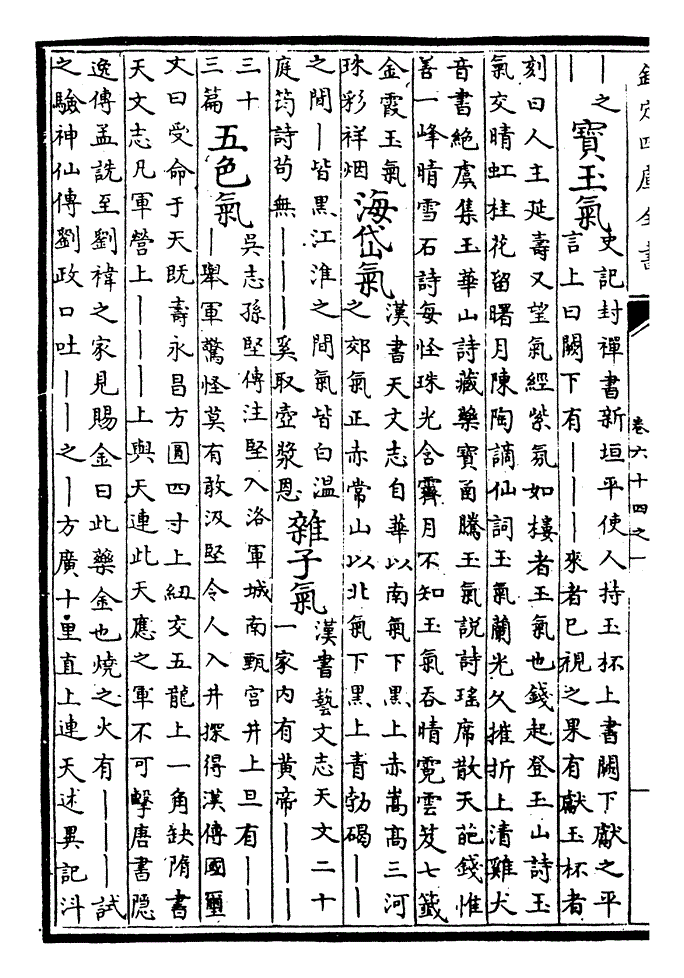 欽定四庫全書
卷六十四之一
｜之
｜｜
寶玉氣
史記封禪書新垣平使人持玉杯上書闕下獻之平
言上曰闕下有｜｜｜來者已視之果有獻玉杯者
刻曰人主延壽又望氣經紫氛如樓者玉氣也錢起登玉山詩玉
氣交晴虹桂花留曙月陳陶謫仙詞玉氣蘭光久摧折上清雞犬
音書絶虞集玉華山詩藏藥寶函騰玉氣説詩瑤席散天葩錢惟
善一峰晴雪石詩每怪珠光含霽月不知玉氣吞晴霓雲笈七籤
金霞玉氣
珠彩祥烟
海岱氣
漢書天文志自華以南氣下黑上赤嵩髙三河
之郊氣正赤常山以北氣下黑上青勃碣｜｜
之間｜皆黑江淮之間氣皆白溫
庭筠詩苟無｜｜｜奚取壺漿恩
雜子氣
漢書藝文志天文二十
一家内有黄帝｜｜｜
三十
三篇
五色氣
吳志孫堅傳注堅入洛軍城南甄宫井上旦有｜｜
｜舉軍驚怪莫有敢汲堅令人入井探得漢傳國璽
文曰受命于天既壽永昌方圓四寸上紐交五龍上一角缺隋書
天文志凡軍營上｜｜｜上與天連此天應之軍不可擊唐書隱
逸傳孟詵至劉禕之家見賜金曰此藥金也燒之火有｜｜｜試
之驗神仙傳劉政口吐｜｜之｜方廣十里直上連天述異記斗